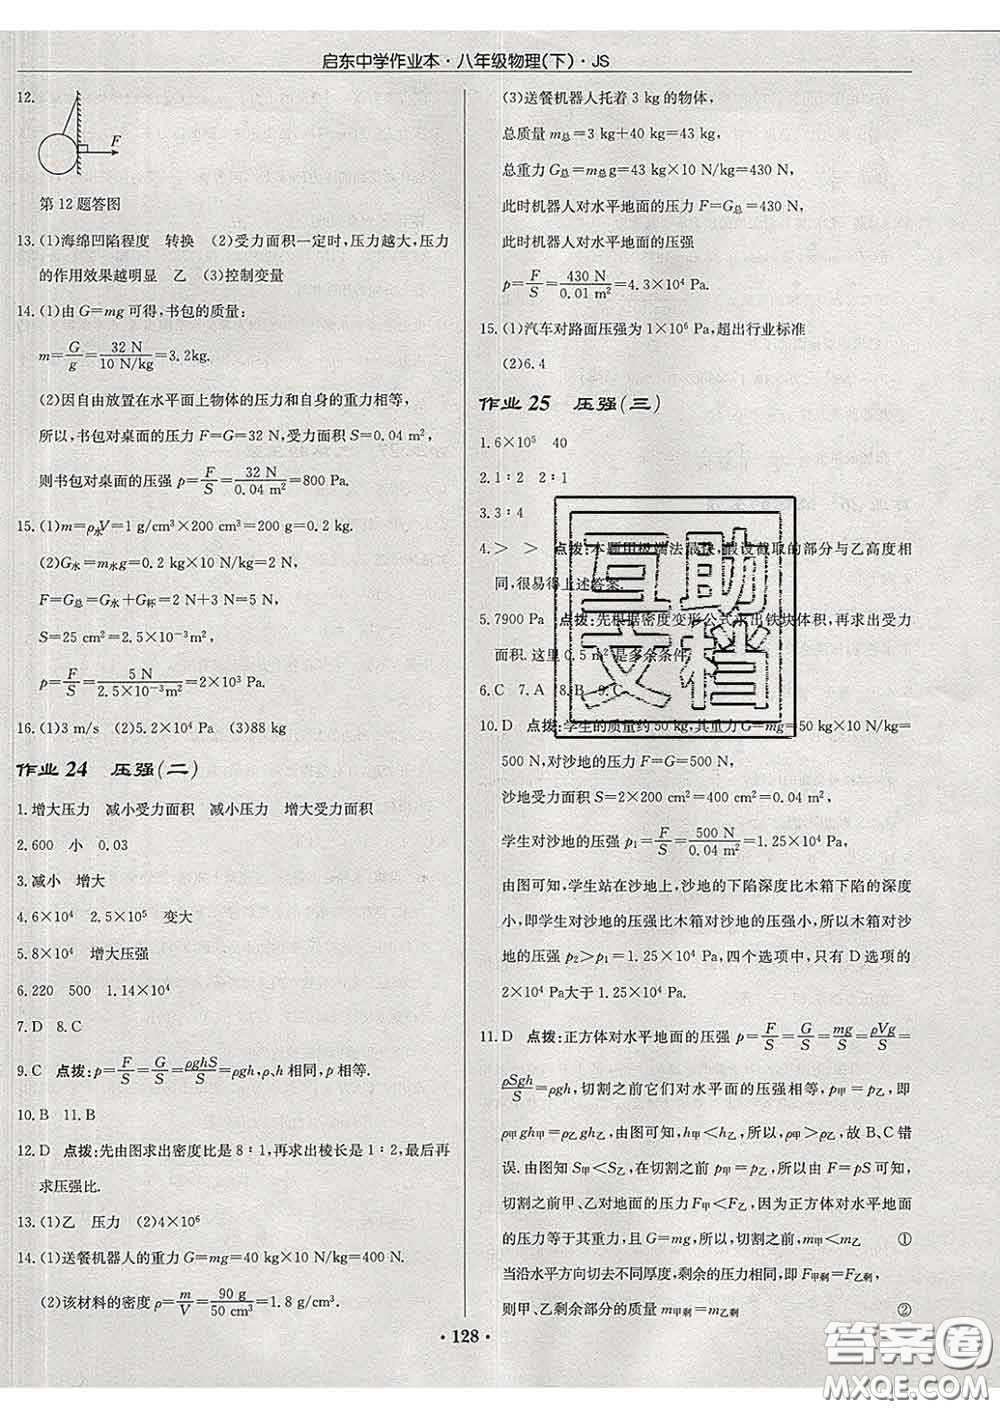 启东中学作业本·八年级物理(下)·JS
12.
F
第12题答图
13.(1)海绵凹陷程度 转换 (2)受力面积一定时,压力越大,压力
的作用效果越明显 乙 (3)控制变量
14.(1)由G=mg可得,书包的质量:
m=G/g=32 N/10 N/kg=3.2kg.
(2)因自由放置在水平面上物体的压力和自身的重力相等,
所以,书包对桌面的压力F=G=32 N,受力面积S=0.04 m²,
则书包对桌面的压强p=F/S=32 N/0.04 m²=800 Pa.
15.(1)m=ρ水V=1 g/cm³×200 cm³=200 g=0.2 kg.
(2)G水=m水g=0.2 kg×10 N/kg=2 N,
F=G总=G水+G杯=2 N+3 N=5 N,
S=25 cm²=2.5×10⁻³m²,
p=F/S=5 N/2.5×10⁻³m²=2×10³ Pa.
16.(1)3 m/s (2)5.2×10⁴ Pa (3)88 kg
作业24 压强(二)
1.增大压力 减小受力面积 减小压力 增大受力面积
2.600 小 0.03
3.减小 增大
4.6×10⁴ 2.5×10⁵ 变大
5.8×10⁴ 增大压强
6.220 500 1.14×10⁴
7.D 8.C
9.C 点拨:p=F/S=G/S=ρghS/S=ρgh,ρ、h相同,p相等.
10.B 11.B
12.D 点拨:先由图求出密度比是8∶1,再求出棱长是1∶2,最后再
求压强比.
13.(1)乙 压力 (2)4×10⁶
14.(1)送餐机器人的重力G=mg=40 kg×10 N/kg=400 N.
(2)该材料的密度ρ=m/V=90 g/50 cm³=1.8 g/cm³.
(3)送餐机器人托着3 kg的物体,
总质量m总=3 kg+40 kg=43 kg,
总重力G总=m总g=43 kg×10 N/kg=430 N,
此时机器人对水平地面的压力F=G总=430 N,
此时机器人对水平地面的压强
p=F/S=430 N/0.01 m²=4.3×10⁴ Pa.
15.(1)汽车对路面压强为1×10⁶ Pa,超出行业标准
(2)6.4
作业25 压强(三)
1.6×10⁵ 40
2.1∶2 2∶1
3.3∶4
4.> > 点拨:本题用极端法最快,假设截取的部分与乙高度相
同,很易得上述答案.
5.7900 Pa 点拨:先根据密度变形公式求出铁块体积,再求出受力
面积.这里0.5 m²是多余条件.
6.C 7.A 8.B 9.C
10.D 点拨:学生的质量约50 kg,其重力G=mg=50 kg×10 N/kg=
500 N,对沙地的压力F=G=500 N,
沙地受力面积S=2×200 cm²=400 cm²=0.04 m²,
学生对沙地的压强p₁=F/S=500 N/0.04 m²=1.25×10⁴ Pa,
由图可知,学生站在沙地上,沙地的下陷深度比木箱下陷的深度
小,即学生对沙地的压强比木箱对沙地的压强小,所以木箱对沙
地的压强p₂>p₁=1.25×10⁴ Pa,四个选项中,只有D选项的
2×10⁴ Pa大于1.25×10⁴ Pa.
11.D 点拨:正方体对水平地面的压强p=F/S=G/S=mg/S=ρVg/S=
ρSgh/S=ρgh,切割之前它们对水平面的压强相等,p甲=p乙,即
ρ甲gh甲=ρ乙gh乙,由图可知,h甲<h乙,所以,ρ甲>ρ乙,故B、C错
误.由图知S甲<S乙,在切割之前p甲=p乙,由F=pS可知,
切割之前甲、乙对地面的压力F甲<F乙,因为正方体对水平地面
的压力等于其重力,F=G=mg,所以,切割之前m甲<m乙 ①
当沿水平方向切去不同厚度,剩余的压力相同,即F甲剩=F乙剩,
则甲、乙剩余部分的质量m甲剩=m乙剩 ②
互助
文档
·128·
答案圈
MXQE.COM